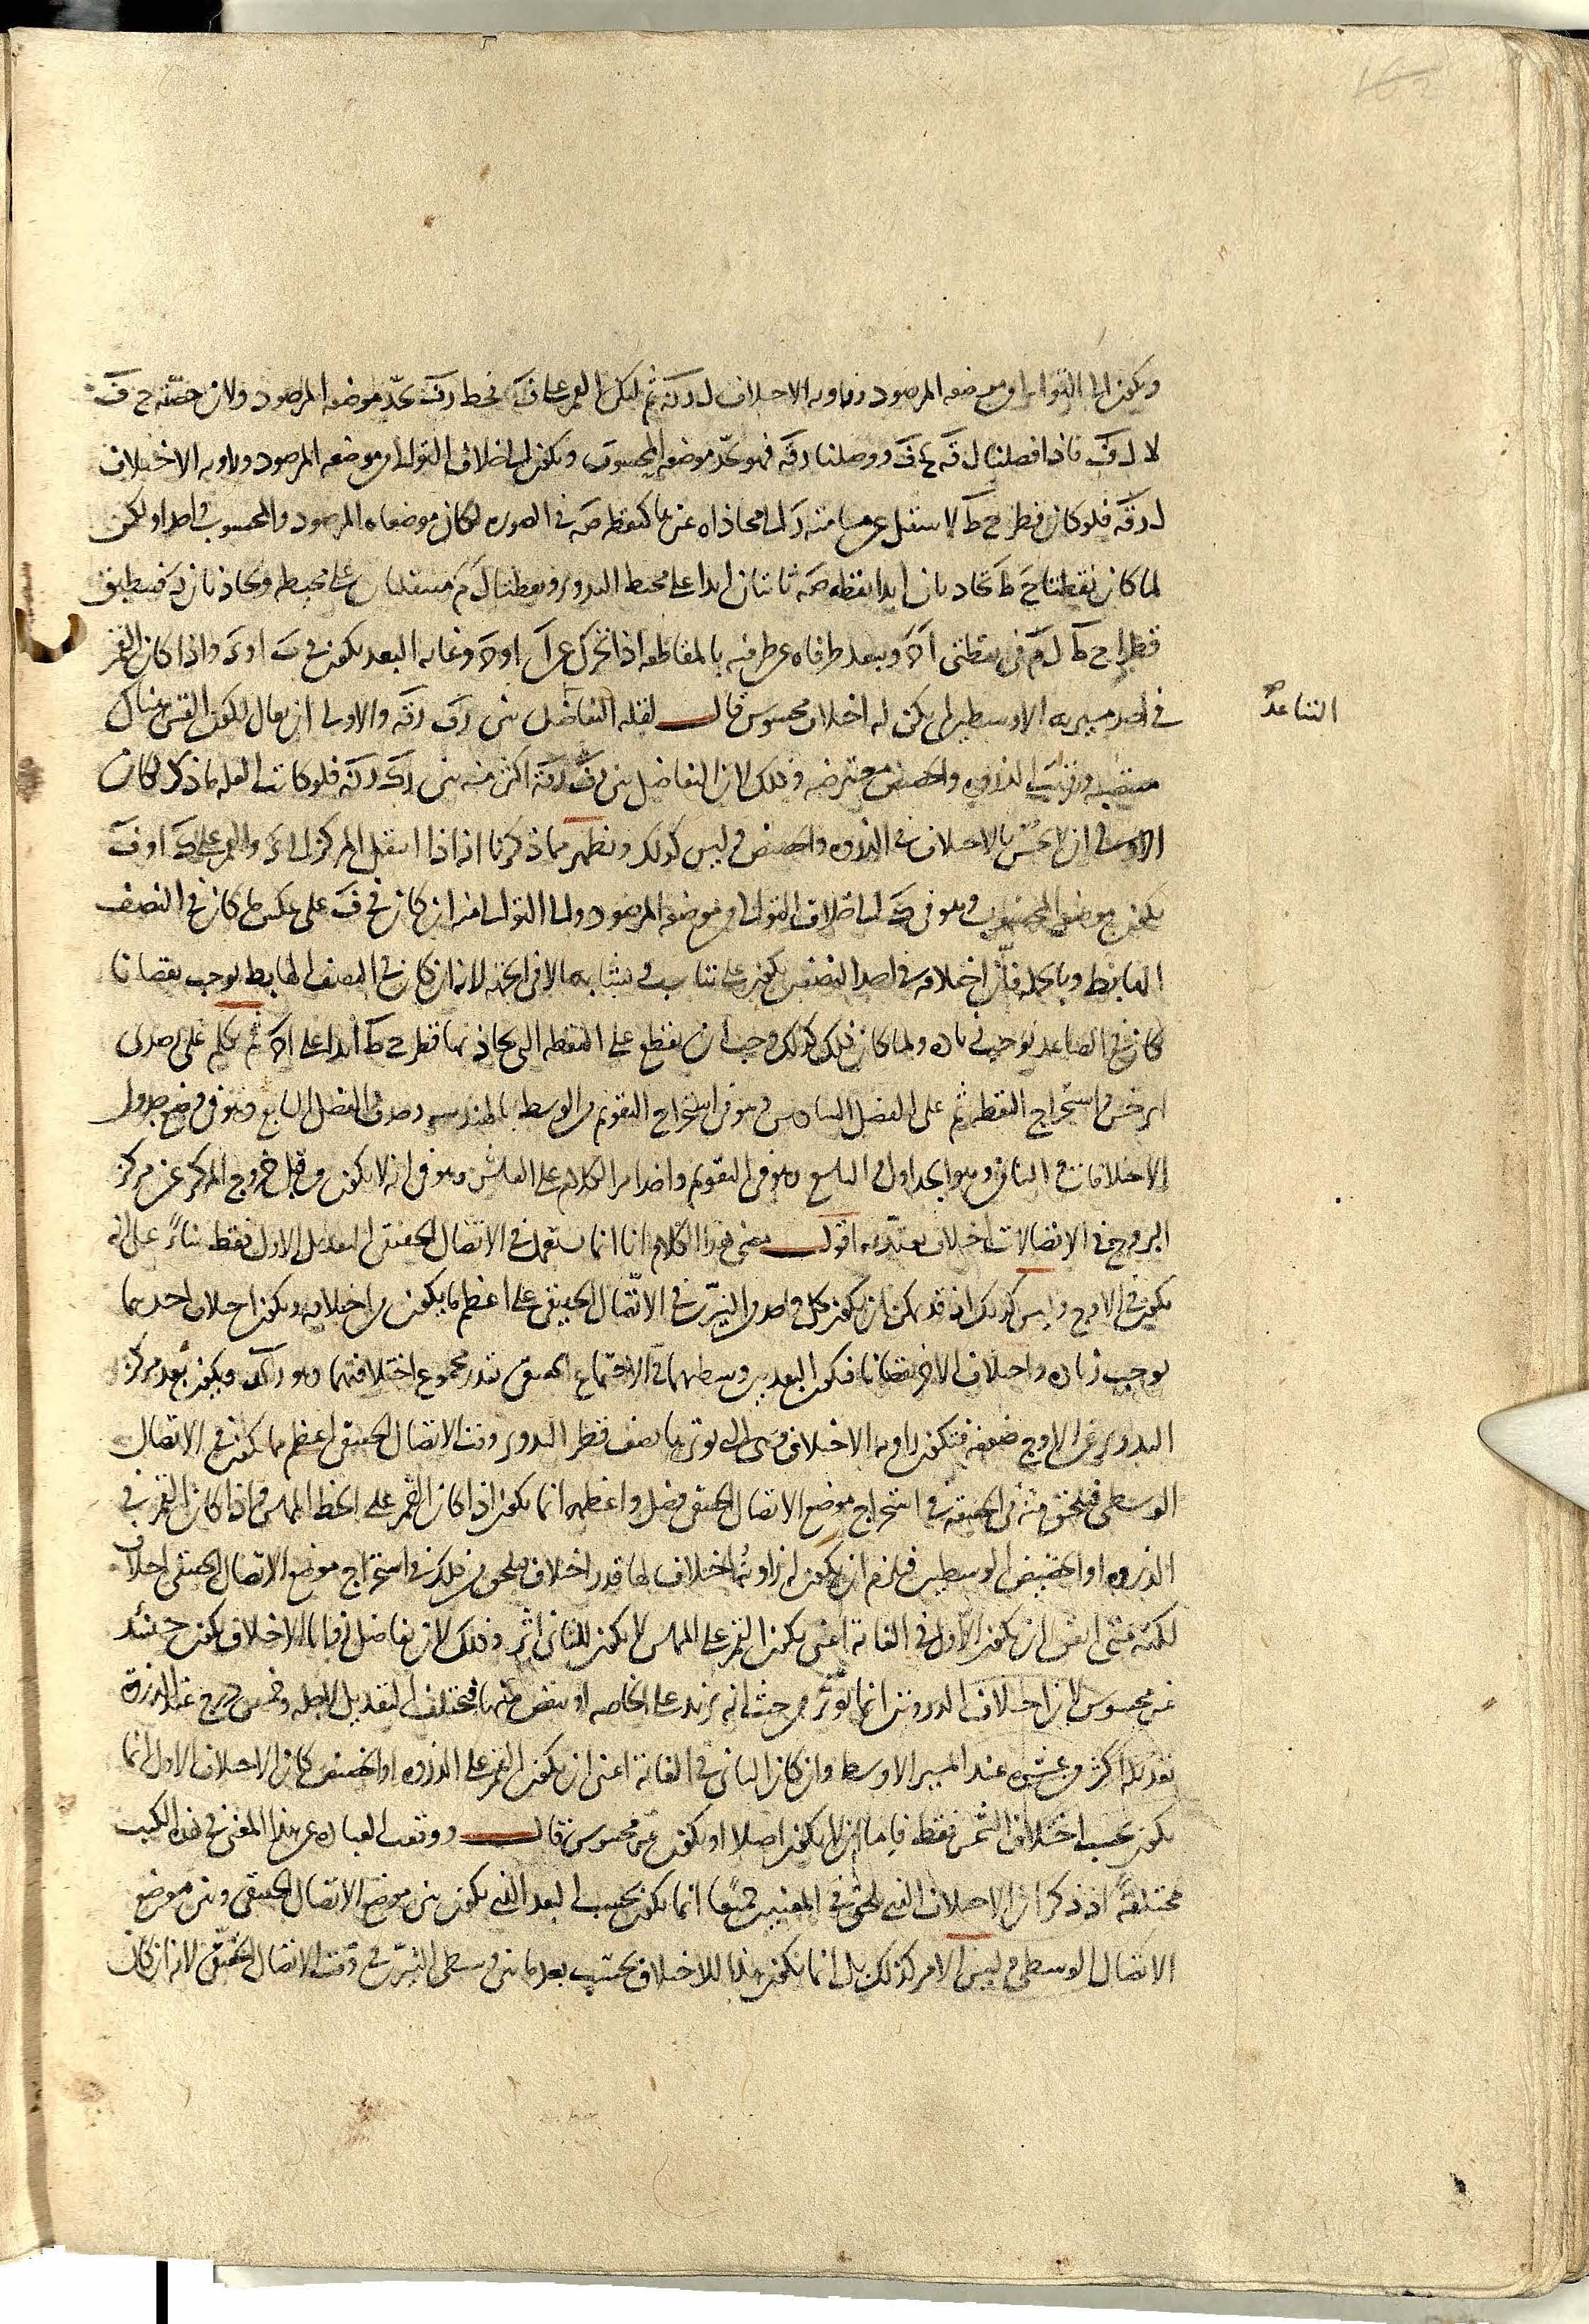 ويكون الى التوالى من موضعه المرصود وزاوية الاختلاف ل د كه ثم ليكن القمر على ف فخط د ف يحد موضعه المرصود ولان حصته ح ف
لا ل ف فاذا فصلنا ل قه ح ف ووصلنا د قه فهو يحد موضعه المحسوب ويكون الى خلاف التوالى من موضعه المرصود وزاوية الاختلاف
ل د قه فلو كان قطر ح ط لا ينتقل عن مسامتة د الى محاذاة غيرها كنقطة صه في الصورة لكان موضعاه المرصود والمحسوب واحدا ولكن
لما كان نقطتا ح ط تحاذيان ابدا نقطة صه ثابتتان ابدا على محيط التدوير ونقطتا ل م منتقلتان على محيطه وتحاذيان د فينطبق
قطرا ح ط ل م في نقطتي ا ه ويبعد طرفاه عن طرفيه بالمقاطعة اذا تحرك عن ا او ه وغاية البعد يكون في ب او د واذا كان القمر
في احد مسيريه الاوسطين لم يكن له اختلاف محسوس قال لقلة التفاضل بين د ف د قه والاولى ان يقال لكون القسي هناك
التباعد
مستقبلة وقرب الذروة والحضيض معترضة وذلك لان التفاضل بين د ف د قه اكثر منه بين د ك د كه فلو كانت العلة ما ذكر لكان
الاولى ان لا يحس بالاختلاف في الذروة والحضيض وليس كذلك ويظهر مما ذكرنا انه اذا انتقل المركز الى د والقمر على ك او ف
يكون موضعه المحسوب وهو في ك الى خلاف التوالى من موضعه المرصود والى التوالى منه ان كان في ف على عكس ما كان في النصف
الهابط وبالجملة فان اختلافه في احد النصفين يكون على تناسب وتشابه الاخر في الجهة لانه ان كان في النصف الهابط يوجب نقصانا
كان في الصاعد يوجب زيادة ولما كان ذلك كذلك وجب ان يقطع على النقطة التي يحاذيها قطر ح ط ابدا على ا ه ثم تكلم على رصدي
ابرخس واستخراج النقطة ثم على الفصل السادس وهو في استخراج التقويم من الوسط بالهندسة وحذف الفصل السابع وهو في وضع جدول
الاختلافات والثامن وهو الجداول والتاسع وهو في التقويم واخذ من الكلام على العاشر وهو في انه لا يكون من قبل خروج المركز عن مركز
البروج في الاتصالات اختلاف يعتد به اقول معنى هذا الكلام انا انما نستعمل في الاتصال الحقيقي التعديل الاول فقط بناء على انه
يكون في الاوج وليس كذلك اذ قد يمكن ان يكون كل واحد من النيرين في الاتصال الحقيقي على اعظم ما يكون من اختلافه ويكون اختلاف احدهما
يوجب زيادة واختلاف الاخر نقصانا فيكون البعد بين وسطيهما في الاجتماع الحقيقي بقدر مجموع اختلافيهما وهو ويكون بعد مركز
التدوير عن الاوج ضعفه فيكون زاوية الاختلاف وهي التي يوترها نصف قطر التدوير وقت الاتصال الحقيقي اعظم مما يكون في الاتصال
الوسطى فيلحق منه في الحقيقة في استخراج موضع الاتصال الحقيقي فضل واعظمه انما يكون اذا كان القمر على الخط المماس واذا كان القمر في
الذروة او الحضيض الوسطين فيلزم ان يكون لزاويتها اختلاف لها قدر اختلاف يلحق من ذلك في استخراج موضع الاتصال الحقيقي اختلاف
لكنه متى اتفق ان يكون الاول في الغاية اعني يكون القمر على المماس لا يكون للثاني اثر وذلك لان تفاضل زوايا الاختلاف يكون حينئذ
غير محسوس لان اختلاف الدورتين انما يؤثر من حيث انه يزيد على الخاصة او ينقص منها فيختلف التعديل لاجله وخمس درج عند الذروة
تعديله اكثر من عشره عند المسير الاوسط وان كان الثاني في الغاية اعني ان يكون القمر على الذروة او الحضيض كان الاختلاف الاول انما
يكون بحسب اختلاف الشمس فقط فاما ان لا يكون اصلا او يكون غير محسوس قال ووقعت العبارة عن هذا المعنى في هذه الكتب
مختلفة اذ ذكر ان الاختلاف الذي يلحق في المعنيين جميعا انما يكون بحسب البعد الذي يكون بين موضع الاتصال الحقيقي وبين موضع
الاتصال الوسطى وليس الامر كذلك بل انما يكون هذا الاختلاف بحسب بعد ما بين وسطي النيرين في وقت الاتصال الحقيقي لانه ان كان